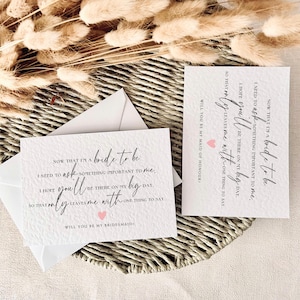 NOW THAT I'M A bride to be
I NEED TO ask SOMETHING IMPORTANT TO me
I HOPE you'll BE THERE ON MY big DAY
SO THAT only LEAVES me with ONE THING TO SAY...
WILL YOU BE MY BRIDESMAID?
NOW THAT I'M A bride to be
I NEED TO ask SOMETHING IMPORTANT TO me
I HOPE you'll BE THERE ON MY big DAY
SO THAT only LEAVES me with ONE THING TO SAY...
WILL YOU BE MY MAID OF HONOUR?